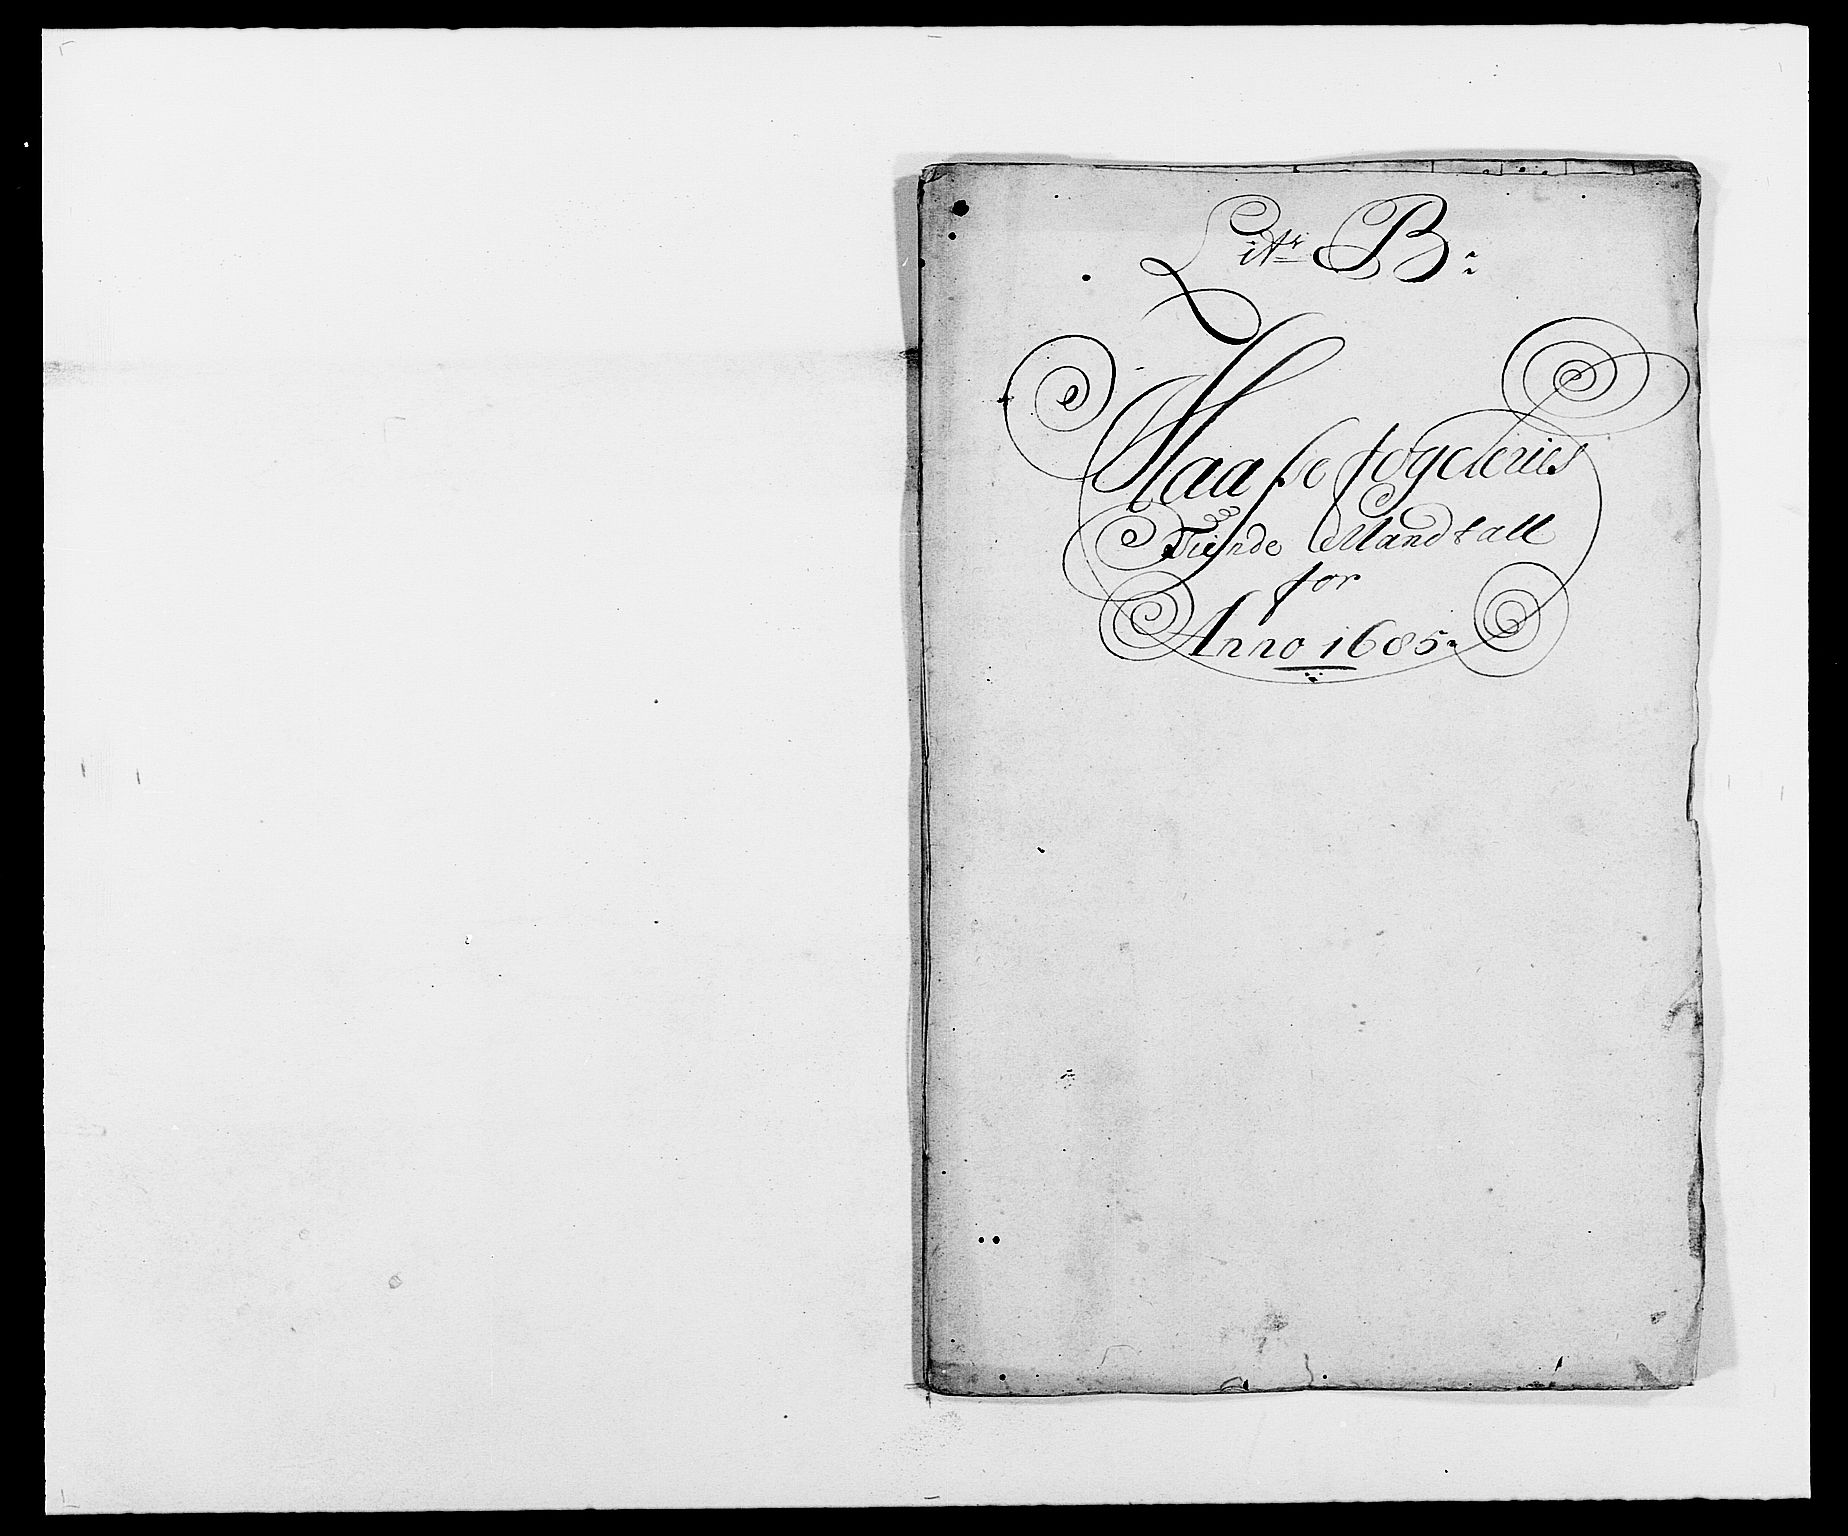 Litr B:
Haasse fogeteries
Tiende Mandtall
for
Anno 1685.